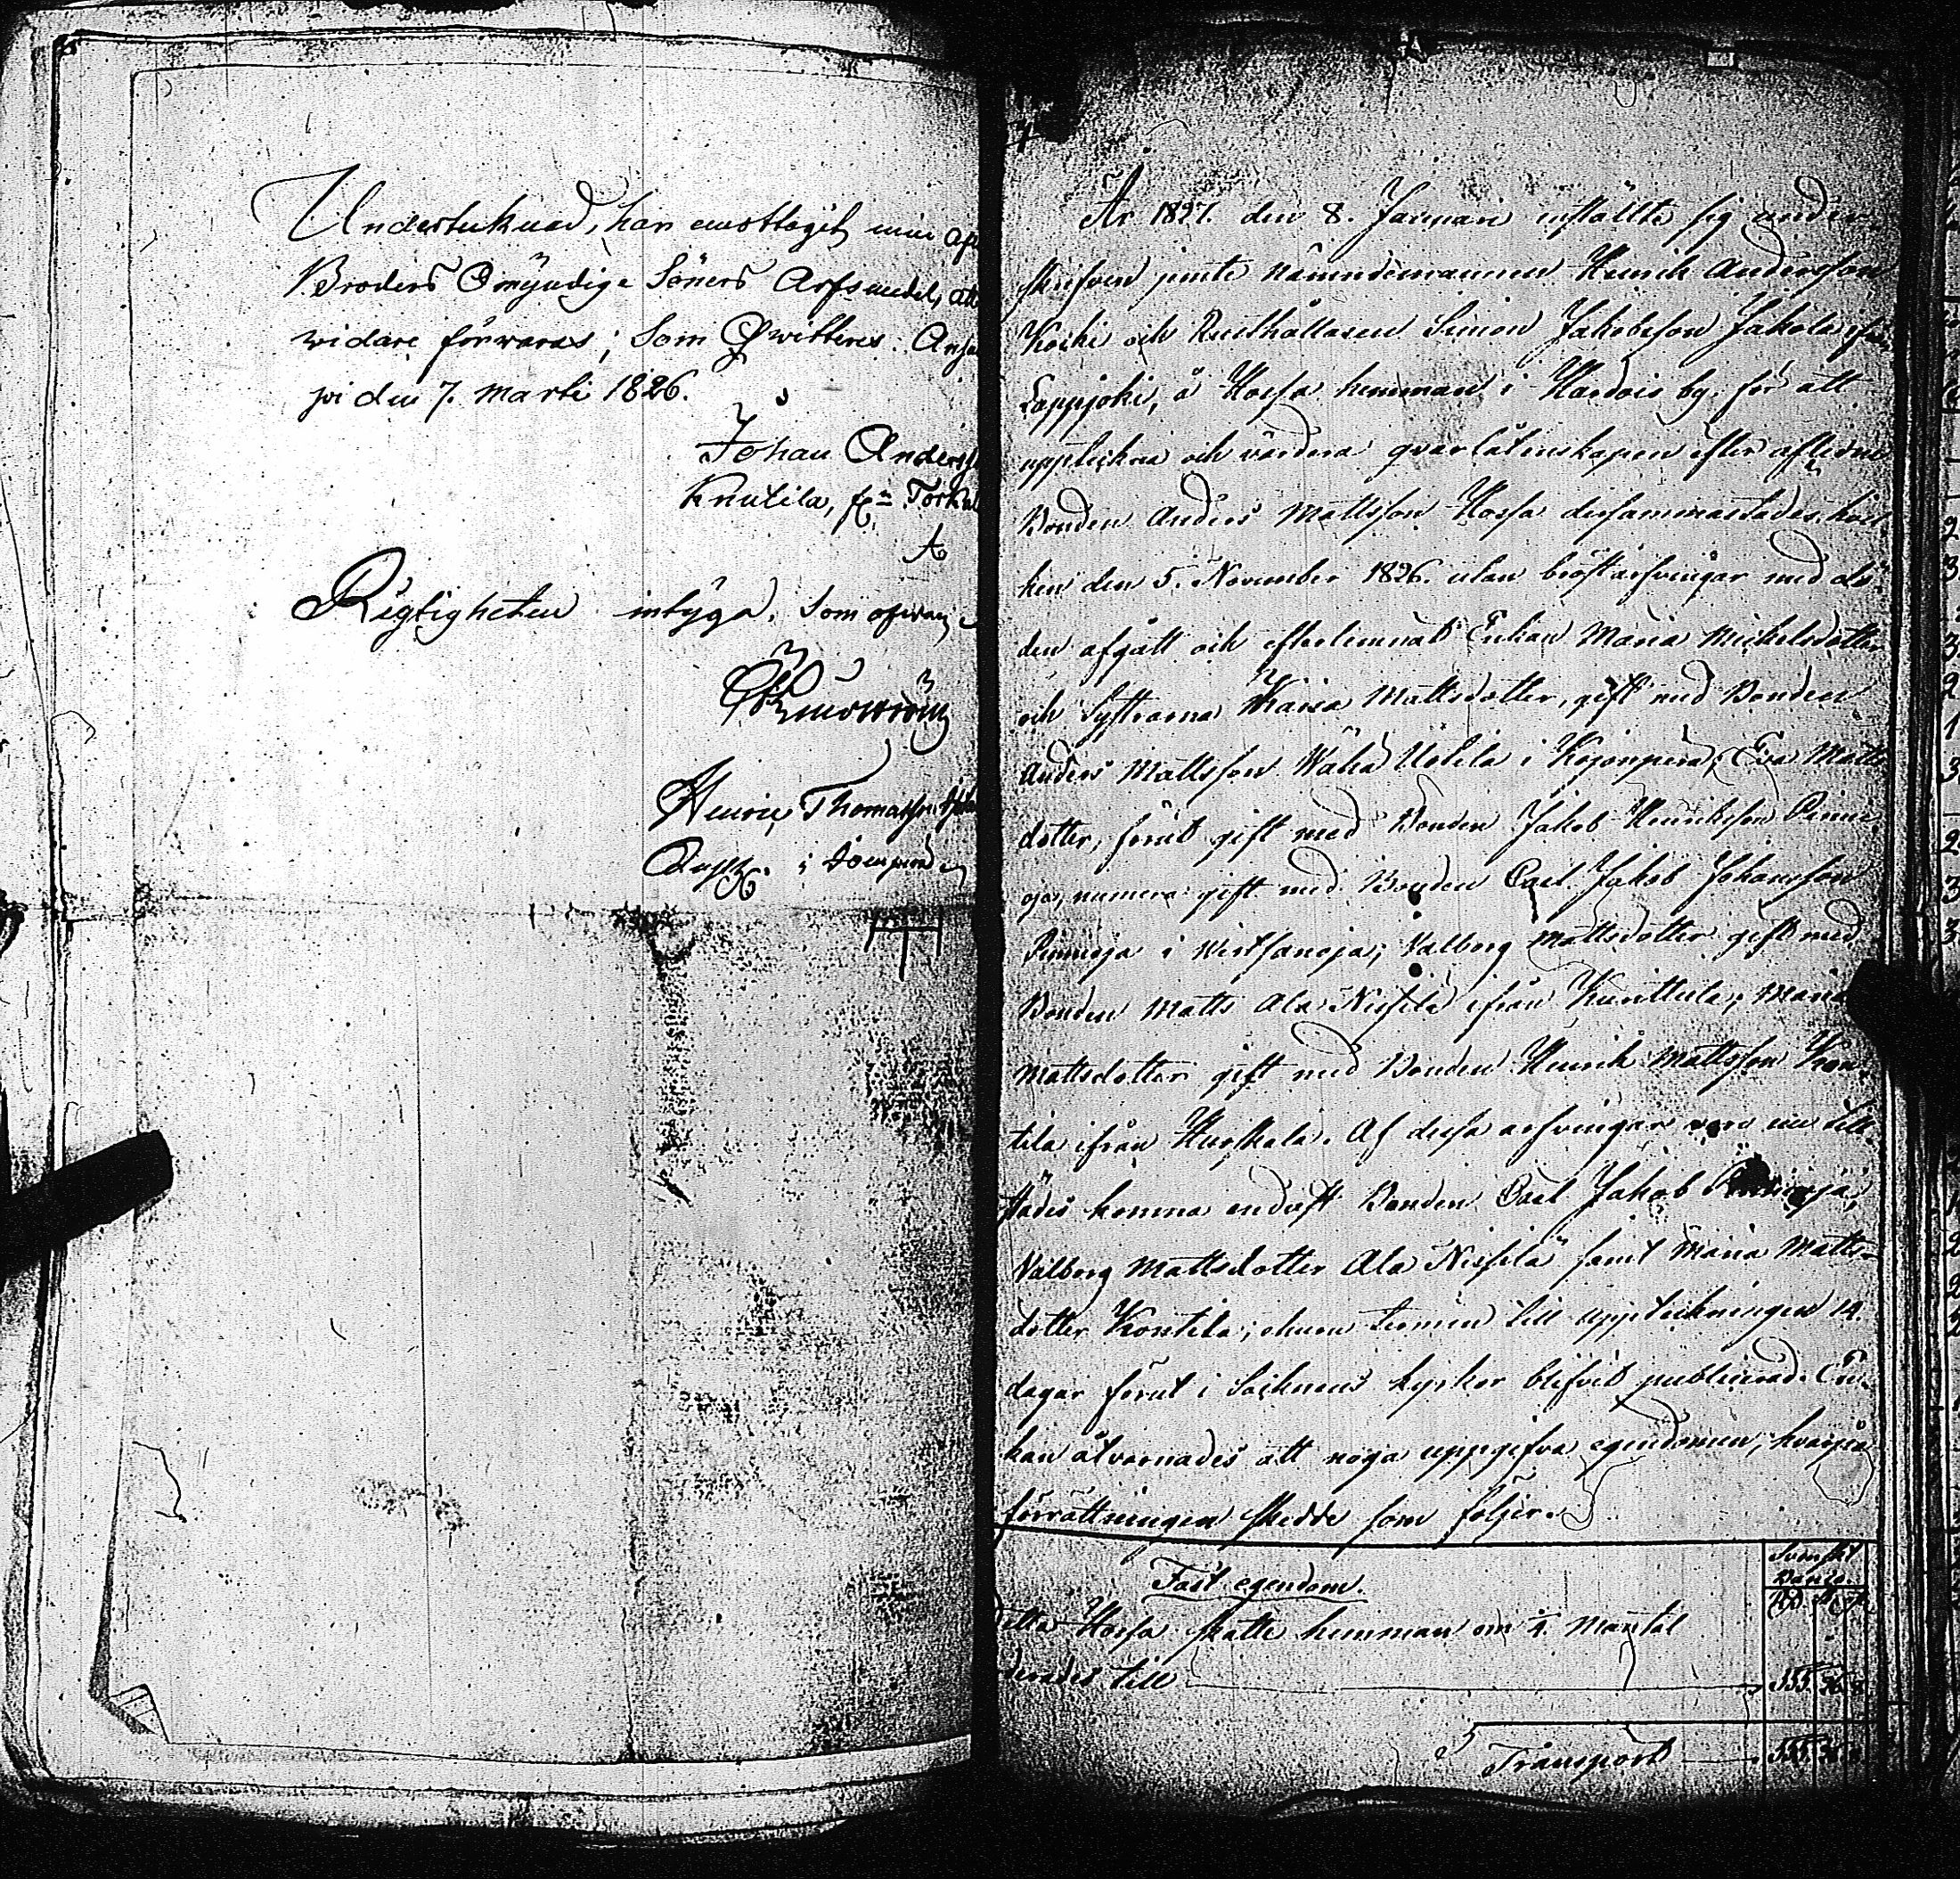 Undertecknad, har emottagit min
Broders Omyndige Söners Arfsmedel, att
vidare förvaras; Som Qvitteres.
den 7. Marti 1826.
Johan
Knutila, fr.
Rigtigheten intyga, Som ofvan
Thomass
i
År 1827. den 8. Januari instälte sig under-
skrifven jemte nämndemannen Henrik Andersson
Koski och Rusthållaren Simon Jakobsson Jakola ifrån
Lappjoki, å Hossa hemman i by för att
uppteckna och värdera qvarlåtenskapen efter aflidne
Bonden Anders Mattsson Hossa dersammastädes, hvil-
ken den 5. November 1826. utan bröstarfvingar med dö-
den afgått och efterlemnat Enkan Maria Mickelsdotter
och Systrarna Maria Mattsdotter, gift med Bonden
Anders Mattsson Wähä Uotila i Kojonperä; Eva Matts-
dotter, förut gift med Bonden Jakob Henriksson Pinni-
oja, numera gift med Bonden Carl Jakob Johansson
Pinnioja i Wirtsanoja; Valborg Mattsdotter gift med
Bonden Matts Ala Nissilä ifrån Kurittula; Maria
Mattsdotter gift med Bonden Henrik Mattsson Kon-
tila ifrån Hurskala. Af dessa arfvingar voro nu till-
städes komne endast Bonden Carl Jakob Pinnioja,
Valborg Mattsdotter Ala Nissilä samt Maria Matts-
dotter Kontila; ehuru termin till uppteckningen 14.
dagar förut i Socknens kyrkor blifvit publicerad. En-
kan åtvarnades att noga uppgifva egendomen, hvarpå
förrättningen skedde som följer.
Svenskt
Banco.
Fast egendom.
Rd s r
Hossa skatte hemman om 1/4 mantal
till 555 26 8
Transport 555